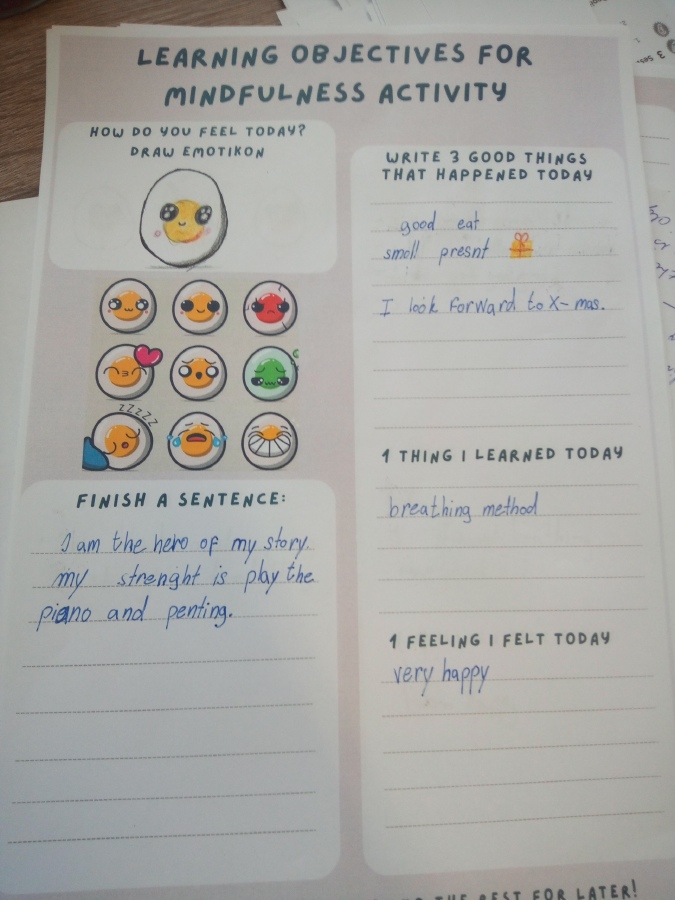 LEARNING OBJECTIVES FOR
MINDFULNESS ACTIVITY
HOW DO YOU FEEL TODAY?
DRAW EMOTIKON
ZZZZZ
FINISH A SENTENCE:
I am the hero of my story.
my strenght is play the
piano and penting.
WRITE 3 GOOD THINGS
THAT HAPPENED TODAY
good eat
smoll presnt
I look forward to X-mas.
1 THING I LEARNED TODAY
breathing method
1 FEELING I FELT TODAY
very happy
THE BEST FOR LATER!